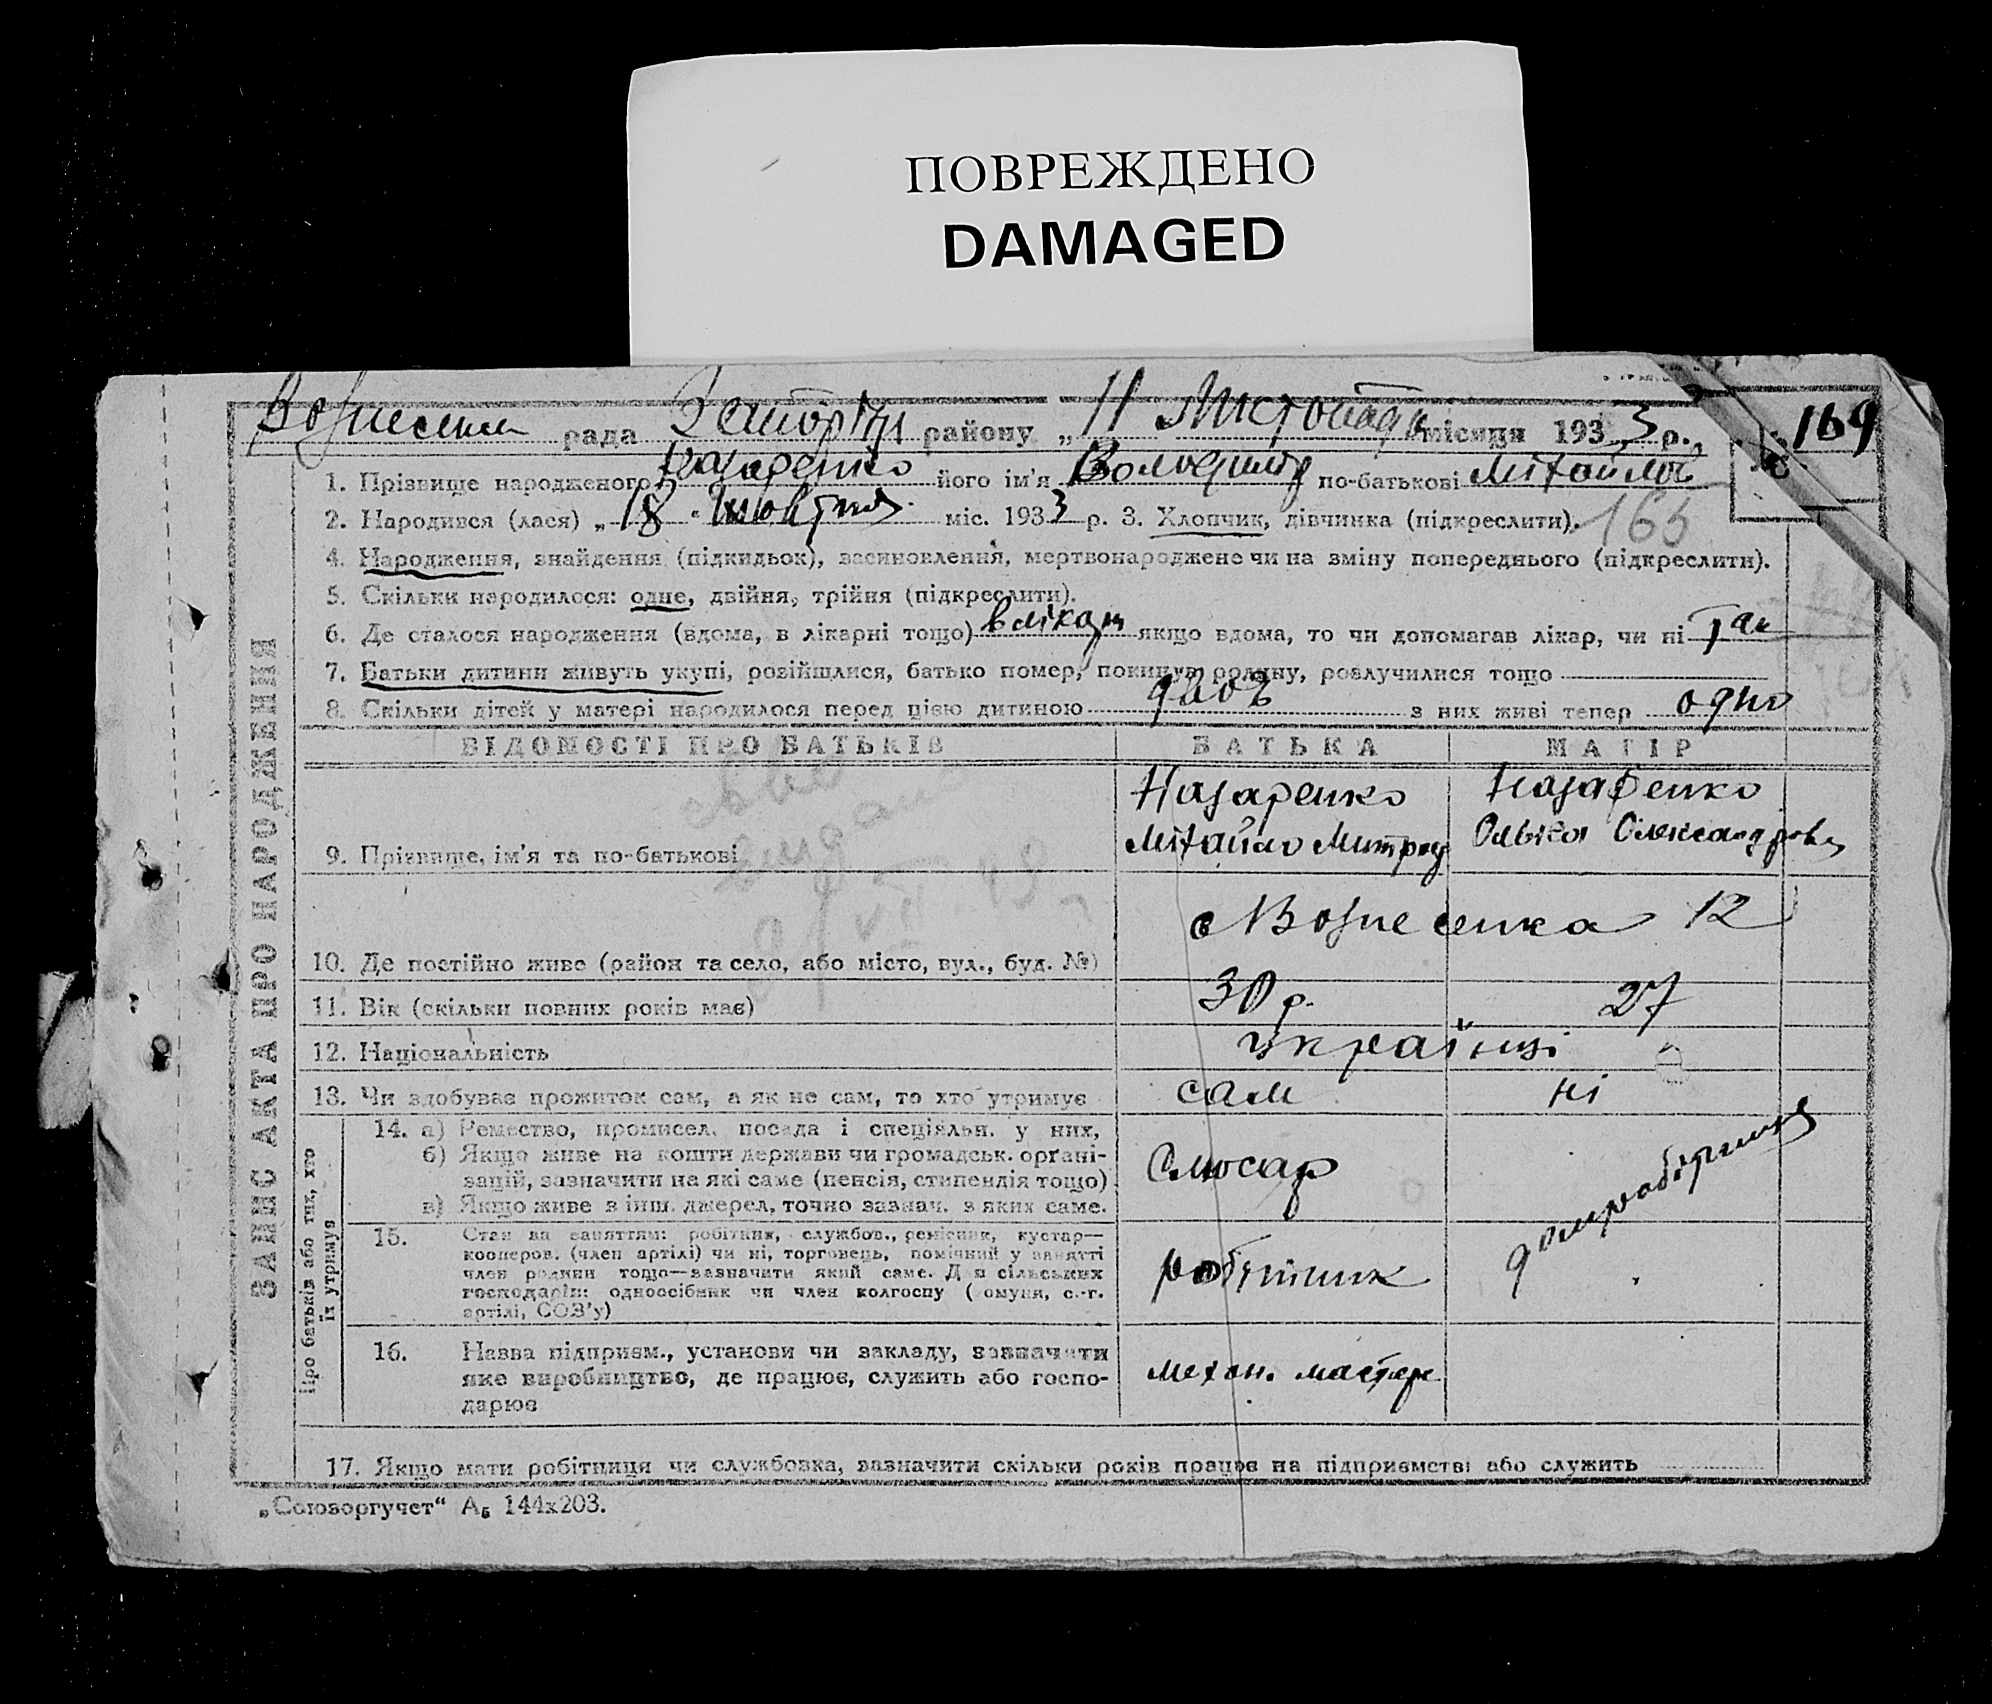 ПОВРЕЖДЕНО
DAMAGED
рада району „11 Листопада місяця 1933 р. № 169
1. Прізвище народженого Назаренко його ім'я Володимир по-батькові Міхайлов
2. Народився (лася) „18" Жовтня міс. 1933 р. 3. Хлопчик, дівчинка (підкреслити). 165
4. Народження, знайдення (підкидьок), засиновлення, мертвонароджене чи на зміну попереднього (підкреслити).
5. Скільки народилося: одне, двійня, трійня (підкреслити).
6. Де сталося народження (вдома, в лікарні тощо) в лікарн якщо вдома, то чи допомагав лікар, чи ні так
7. Батьки дитини живуть укупі, розійшлися, батько помер, покинув родину, розлучилися тощо
8. Скільки дітей у матері народилося перед цією дитиною двоє з них живі тепер одно
ВІДОМОСТІ ПРО БАТЬКІВ БАТЬКА МАТІР
Назаренко Назаренко
9. Прізвище, ім'я та по-батькові Міхайло Митроф Олександровн
с Вознесенка 12
10. Де постійно живе (район та село, або місто, вул., буд. №)
11. Вік (скільки повних років має) 30 р. 27
12. Національність українці
13. Чи здобуває прожиток сам, а як не сам, то хто утримує сам ні
14. а) Ремество, промисел, посада і спеціяльн. у них,
б) Якщо живе на кошти держави чи громадськ. органі-
зацій, зазначити на які саме (пенсія, стипендія тощо) Слюсар
в) Якщо живе з інш. джерел, точно зазнач. з яких саме.
15. Стан за заняттям: робітник, службов., ремісник, кустар—
кооперов. (член артілі) чи ні, торговець, помічний у занятті
член родини тощо—зазначити який саме. Для сільських робітник домробітниця
господарів: одноосібник чи член колгоспу (омуни, с.-г.
артілі, СОЗ'у)
16. Назва підприєм., установи чи закладу, зазначити
яке виробництво, де працює, служить або госпо- механ. мастер
дарює
17. Якщо мати робітниця чи службовка, зазначити скільки років працює на підприємстві або служить
„Союзоргучет" А5 144х203.
ЗАПИС АКТА ПРО НАРОДЖЕННЯ
Про батьків або тих, хто
їх утримує